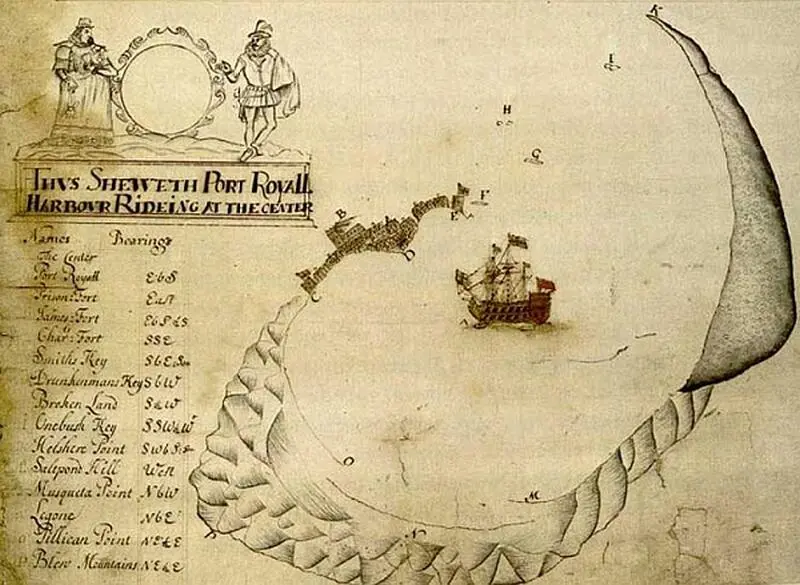 THVS SHEWETH PORT ROYALL
HARBOUR RIDEING AT THE CENTER
Names Bearings
The Center
Port Royall EbS
Prison:Fort East
James:Fort
Char: Fort SSE
Smiths Key
Drunkenmans Key SbW
Broken Land
Onebush Key
Helshere Point
Saltpond Hill West
Musqueta Point NbW
Legone NbE
Pillican Point
Blew Mountains
K
I
H
G
F
E
B
C
A
O
M
N
P